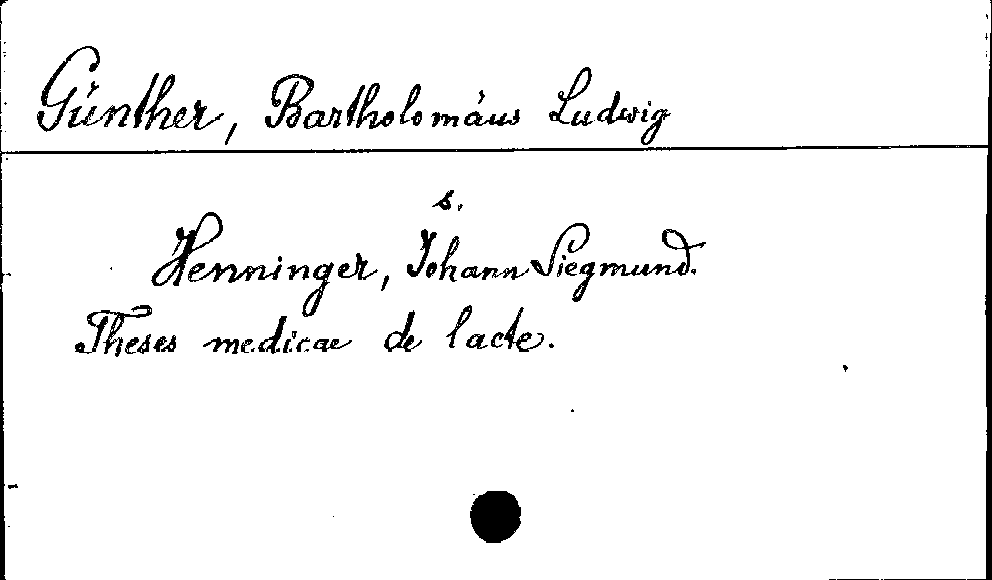 Günther, Bartholomäus Ludwig
s.
Henninger, Johann Siegmund.
Theses medicae de lacte.